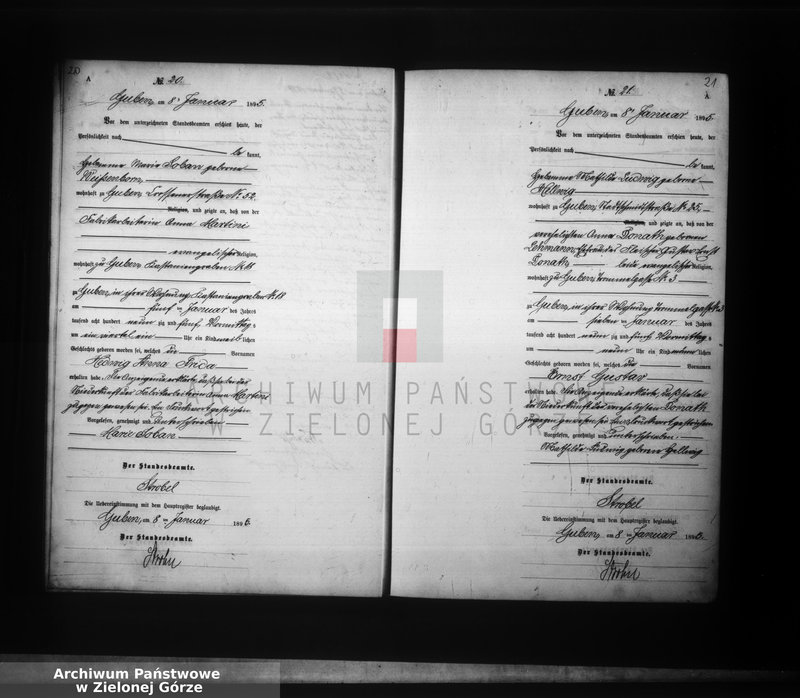 20
A
№ 20.
Guben, am 8 Januar 1895.
Vor dem unterzeichneten Standesbeamten erschien heute, der
Persönlichkeit nach
be kannt,
Hebamme Marie Loban geborene
Weißenborn
wohnhaft zu Guben Crossenerstraße № 52,
Religion, und zeigte an, daß von der
Fabrikarbeiterin Anna Martini
evangelischer Religion,
wohnhaft zu Guben Kastaniengraben № 18
zu Guben, in ihrer Wohnung Kastaniengraben № 18
am fünf ten Januar des Jahres
tausend acht hundert neun zig und fünf Vormittag s
um ein viertel ein Uhr ein Kind weib lichen
Geschlechts geboren worden sei, welches die Vornamen
Hedwig Frida
erhalten habe. Die Anzeigende erklärte, daß sie bei der
Niederkunft der Fabrikarbeiterin Anna Martini
zugegen gewesen sei.
Vorgelesen, genehmigt und unterschrieben
Marie Loban
Der Standesbeamte.
Strobel
Die Uebereinstimmung mit dem Hauptregister beglaubigt.
Guben, am 8 ten Januar 1895.
Der Standesbeamte.
21
A
№ 21.
Guben, am 8 Januar 1895.
Vor dem unterzeichneten Standesbeamten erschien heute, der
Persönlichkeit nach
be kannt,
Hebamme Mathilde Ludwig geborene
Hellwig
wohnhaft zu Guben, Stadtschmidtstraße № 25,
Religion, und zeigte an, daß von der
verehelichten Anna Donath geborenen
Lehmann, Ehefrau des Gustav Ernst
Donath beide evangelischer Religion,
wohnhaft zu Guben, № 3
zu Guben, in ihrer Wohnung № 3
am sieben ten Januar des Jahres
tausend acht hundert neun zig und fünf Vormittag s
um neun Uhr ein Kind männ lichen
Geschlechts geboren worden sei, welches die Vornamen
Ernst Gustav
erhalten habe. Die Anzeigende erklärte, daß sie bei
der Niederkunft der verehelichten Donath
zugegen gewesen sei.
Vorgelesen, genehmigt und unterschrieben.
Mathilde Ludwig geborene Hellwig
Der Standesbeamte.
Strobel
Die Uebereinstimmung mit dem Hauptregister beglaubigt.
Guben, am 8 ten Januar 1895.
Der Standesbeamte.
ARCHIWUM PAŃSTWOWE
W ZIELONEJ GÓRZE
Archiwum Państwowe
w Zielonej Górze